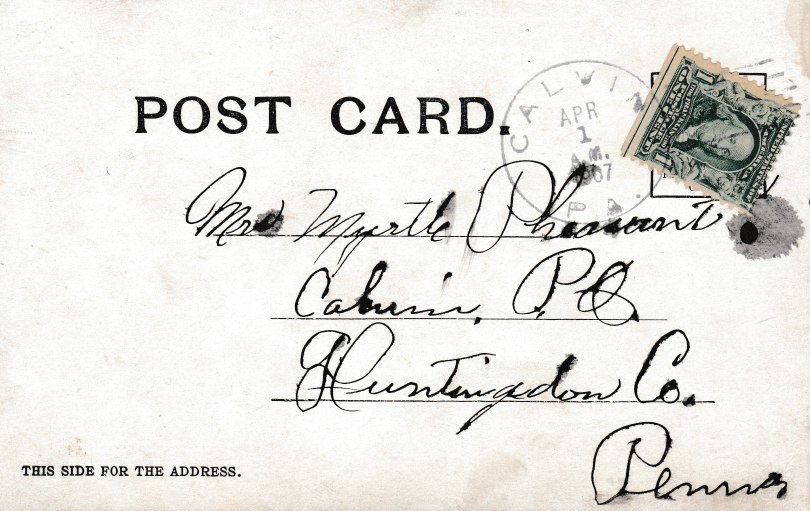 POST CARD.
CALVIN
APR
1
A.M.
1907
PA.
Mrs Myrtle
Calvin, P.O.
Huntingdon Co.
Penna
THIS SIDE FOR THE ADDRESS.